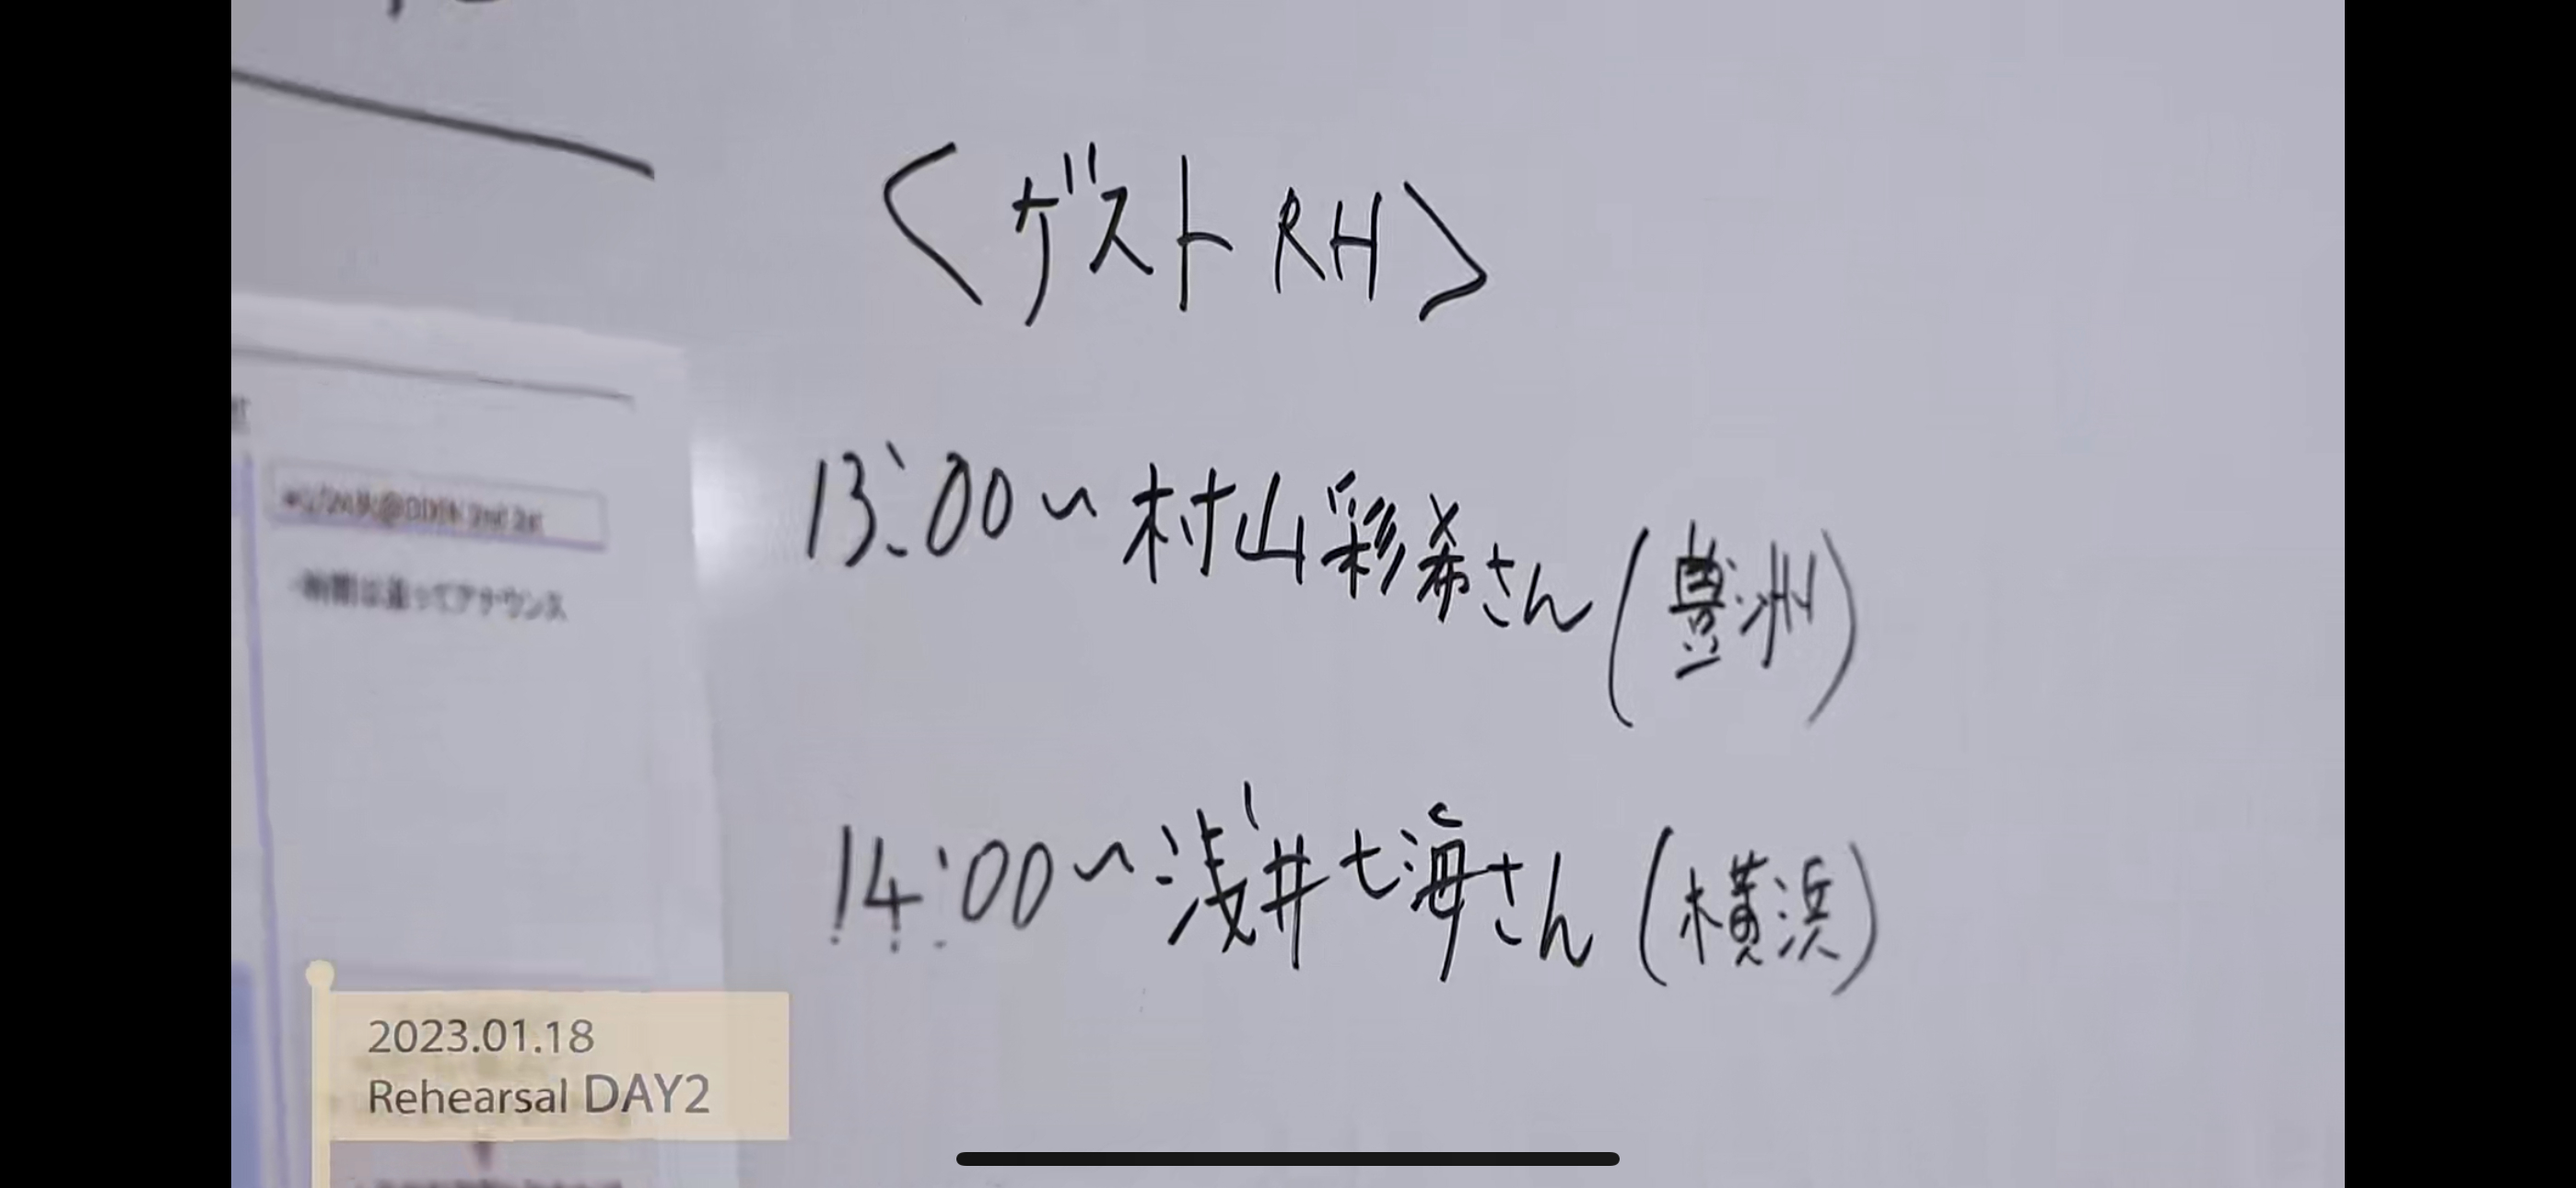 <ゲストRH>
13:00〜村山彩希さん(豊洲)
14:00〜浅井七海さん(横浜)
時間は追ってアナウンス
2023.01.18
Rehearsal DAY2